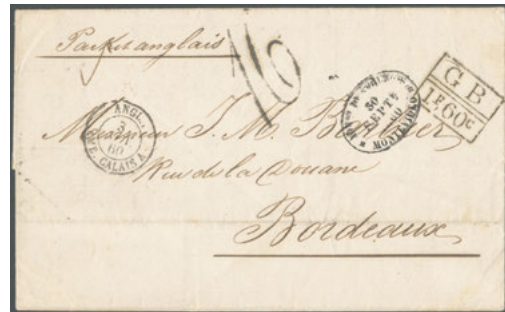 Packet anglais
16
G B
1F60c
30
SEPTE
60
MONTEVIDEO
ANGL.
3
60
CALAIS
Monsieur J. M.
Rue de la Douane
Bordeaux